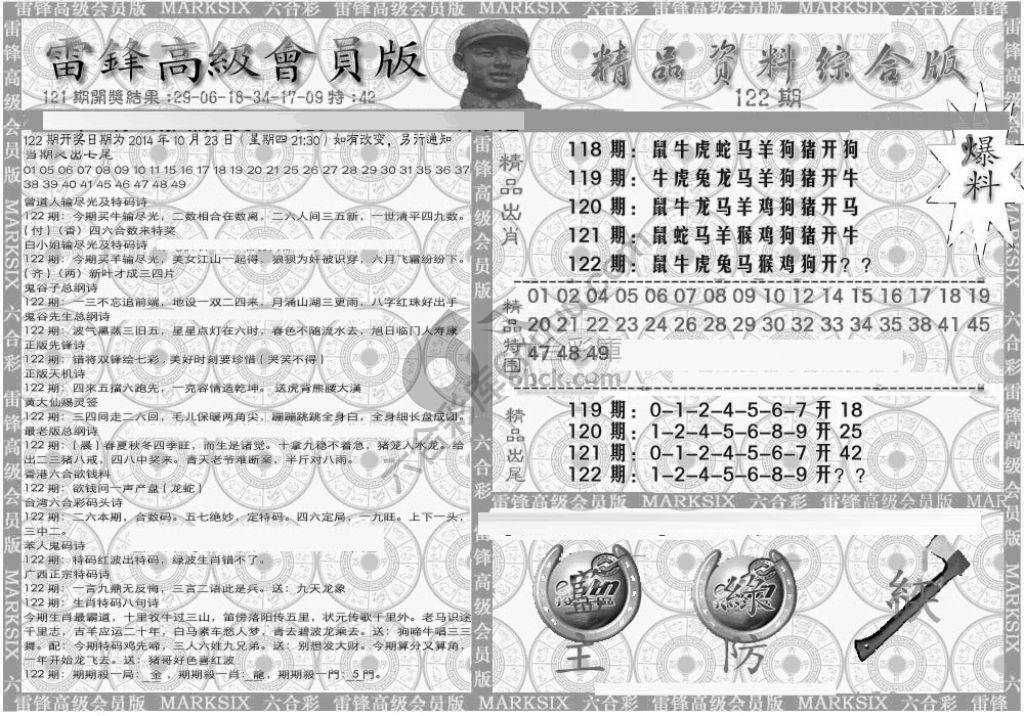 雷锋高级会员版 MARKSIX 六合彩 雷锋高级会员版 MARKSIX 六合彩 雷锋高级会员版 MARKSIX 六合彩 雷锋
雷鋒高級會員版
121期開獎結果:29-06-18-34-17-09特:42
精品资料综合版
122期
122期开奖日期为2014年10月23日(星期四21:30)如有改变,另行通知
当期人出七尾
01 05 06 07 08 09 10 11 15 16 17 18 19 20 21 25 26 27 28 29 30 31 35 36 37
38 39 40 41 45 46 47 48 49
曾道人输尽光及特码诗
122期:今期买牛输尽光,二数相合在数离,二六人间三五新,一世清平四九数。
{付}(香)四六合数来特奖
白小姐输尽光及特码诗
122期:今期买羊输尽光,美女江山一起得,狼狈为奸被识穿,六月飞霜纷纷下。
{齐}(两)新叶才成三四片
鬼谷子总纲诗
122期:一三不忘追前端,地设一双二四来,月涌山湖三更雨,八字红珠好出手
鬼谷先生总纲诗
122期:波气黑蒸三旧五,星星点灯在六时,春色不随流水去,旭日临门人寿康
正版先锋诗
122期:错将双锋绘七彩,美好时刻要珍惜{哭笑不得}
正版天机诗
122期:四来五擋六跑先,一克容情造乾坤。送虎背熊腰大漢
黄大仙赐灵签
122期:三四同走二六回,毛儿保暖两角尖,蹦蹦跳跳全身白,全身细长盘成团。
最老版总纲诗
122期:{晨}春夏秋冬四季旺,而生是诸觉。十拿九稳不着急,猪笼入水龙。给
出二三猪八戒,四八中奖来。青天老爷难断案,半斤对八雨。
香港六合欲钱料
122期:欲钱问一声产盘{龙蛇}
台湾六合彩码头诗
122期:二六本期,合数码。五七绝妙,定特码。四六定局,一九旺。上下一头,
三中二。
苯人鬼码诗
122期:特码红波出特码,绿波生肖错不了。
广西正宗特码诗
122期:一言九鼎无反悔,三言二语此是兵。送:九天龙象
122期:生肖特码八句诗
今期生肖最霸道,十里牧牛过三山,笛傍落阳传五里,状元传歌千里外。老马识途
千里志,吉羊应运二十年,白马素车愁人梦,青去碧波龙乘去。送:狗啼牛唱三三
舞。配:今期特码鸡先啼,三人六姓九兄弟。送:别想发大财。今期算分又算角,
一年开始龙飞去。送:猪哥好色喜红波
122期:期期殺一局:金,期期殺一肖:龍,期期殺一門:5門。
精品出肖
118期:鼠牛虎蛇马羊狗猪开狗
119期:牛虎兔龙马羊狗猪开牛
120期:鼠牛龙马羊鸡狗猪开马
121期:鼠蛇马羊猴鸡狗猪开牛
122期:鼠牛虎兔马猴鸡狗开??
爆料
精品特围
01 02 04 05 06 07 08 09 10 12 14 15 16 17 18 19
20 21 22 23 24 26 28 29 30 32 33 34 35 38 41 45
47 48 49
精品出尾
119期:0-1-2-4-5-6-7开18
120期:1-2-4-5-6-8-9开25
121期:0-1-2-4-5-6-7开42
122期:1-2-4-5-6-8-9开??
雷锋高级会员版 MARKSIX 六合彩 雷锋高级会员版
主
防
綠
雷锋高级会员版 MARKSIX 六合彩 雷锋高级会员版 MARKSIX 六合彩 雷锋高级会员版 MARKSIX 六合彩 雷锋